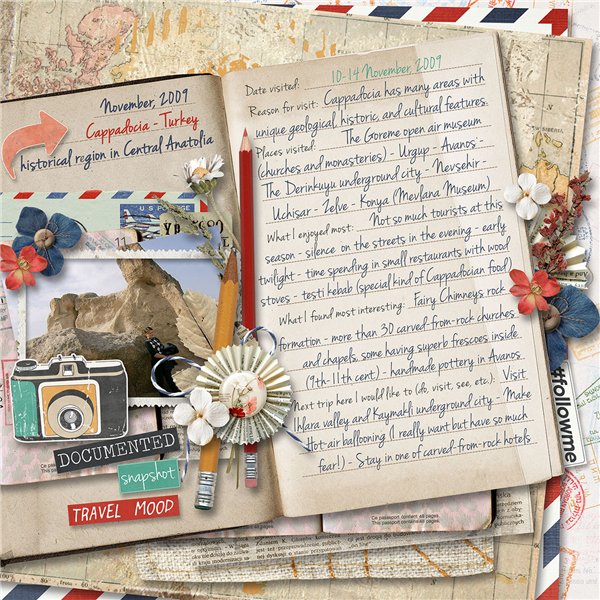 November, 2009
Cappadocia - Turkey
historical region in Central Anatolia
U.S. POSTAGE
11
DOCUMENTED
snapshot
TRAVEL MOOD
Date visited: 10-14 November, 2009
Reason for visit: Cappadocia has many areas with
unique geological, historic, and cultural features.
Places visited: The Goreme open air museum
(churches and monasteries) - Urgup - Avanos -
The Derinkuyu underground city - Nevsehir -
Uchisar - Zelve - Konya (Mevlana Museum)
What I enjoyed most: Not so much tourists at this
season - silence on the streets in the evening - early
twilight - time spending in small restaurants with wood
stoves - testi kebab (special kind of Cappadocian food)
What I found most interesting: Fairy Chimneys rock
formation - more than 30 carved-from-rock churches
and chapels, some having superb frescoes inside
(9th-11th cent) - handmade pottery in Avanos
Next trip here I would like to (do, visit, see, etc.): Visit
Ihlara valley and Kaymakli underground city - Make
Hot-air ballooning (I really want but have so much
fear!) - Stay in one of carved-from-rock hotels
#followme
Ce passeport contient 48 pages.
This passport contains 48 pages.